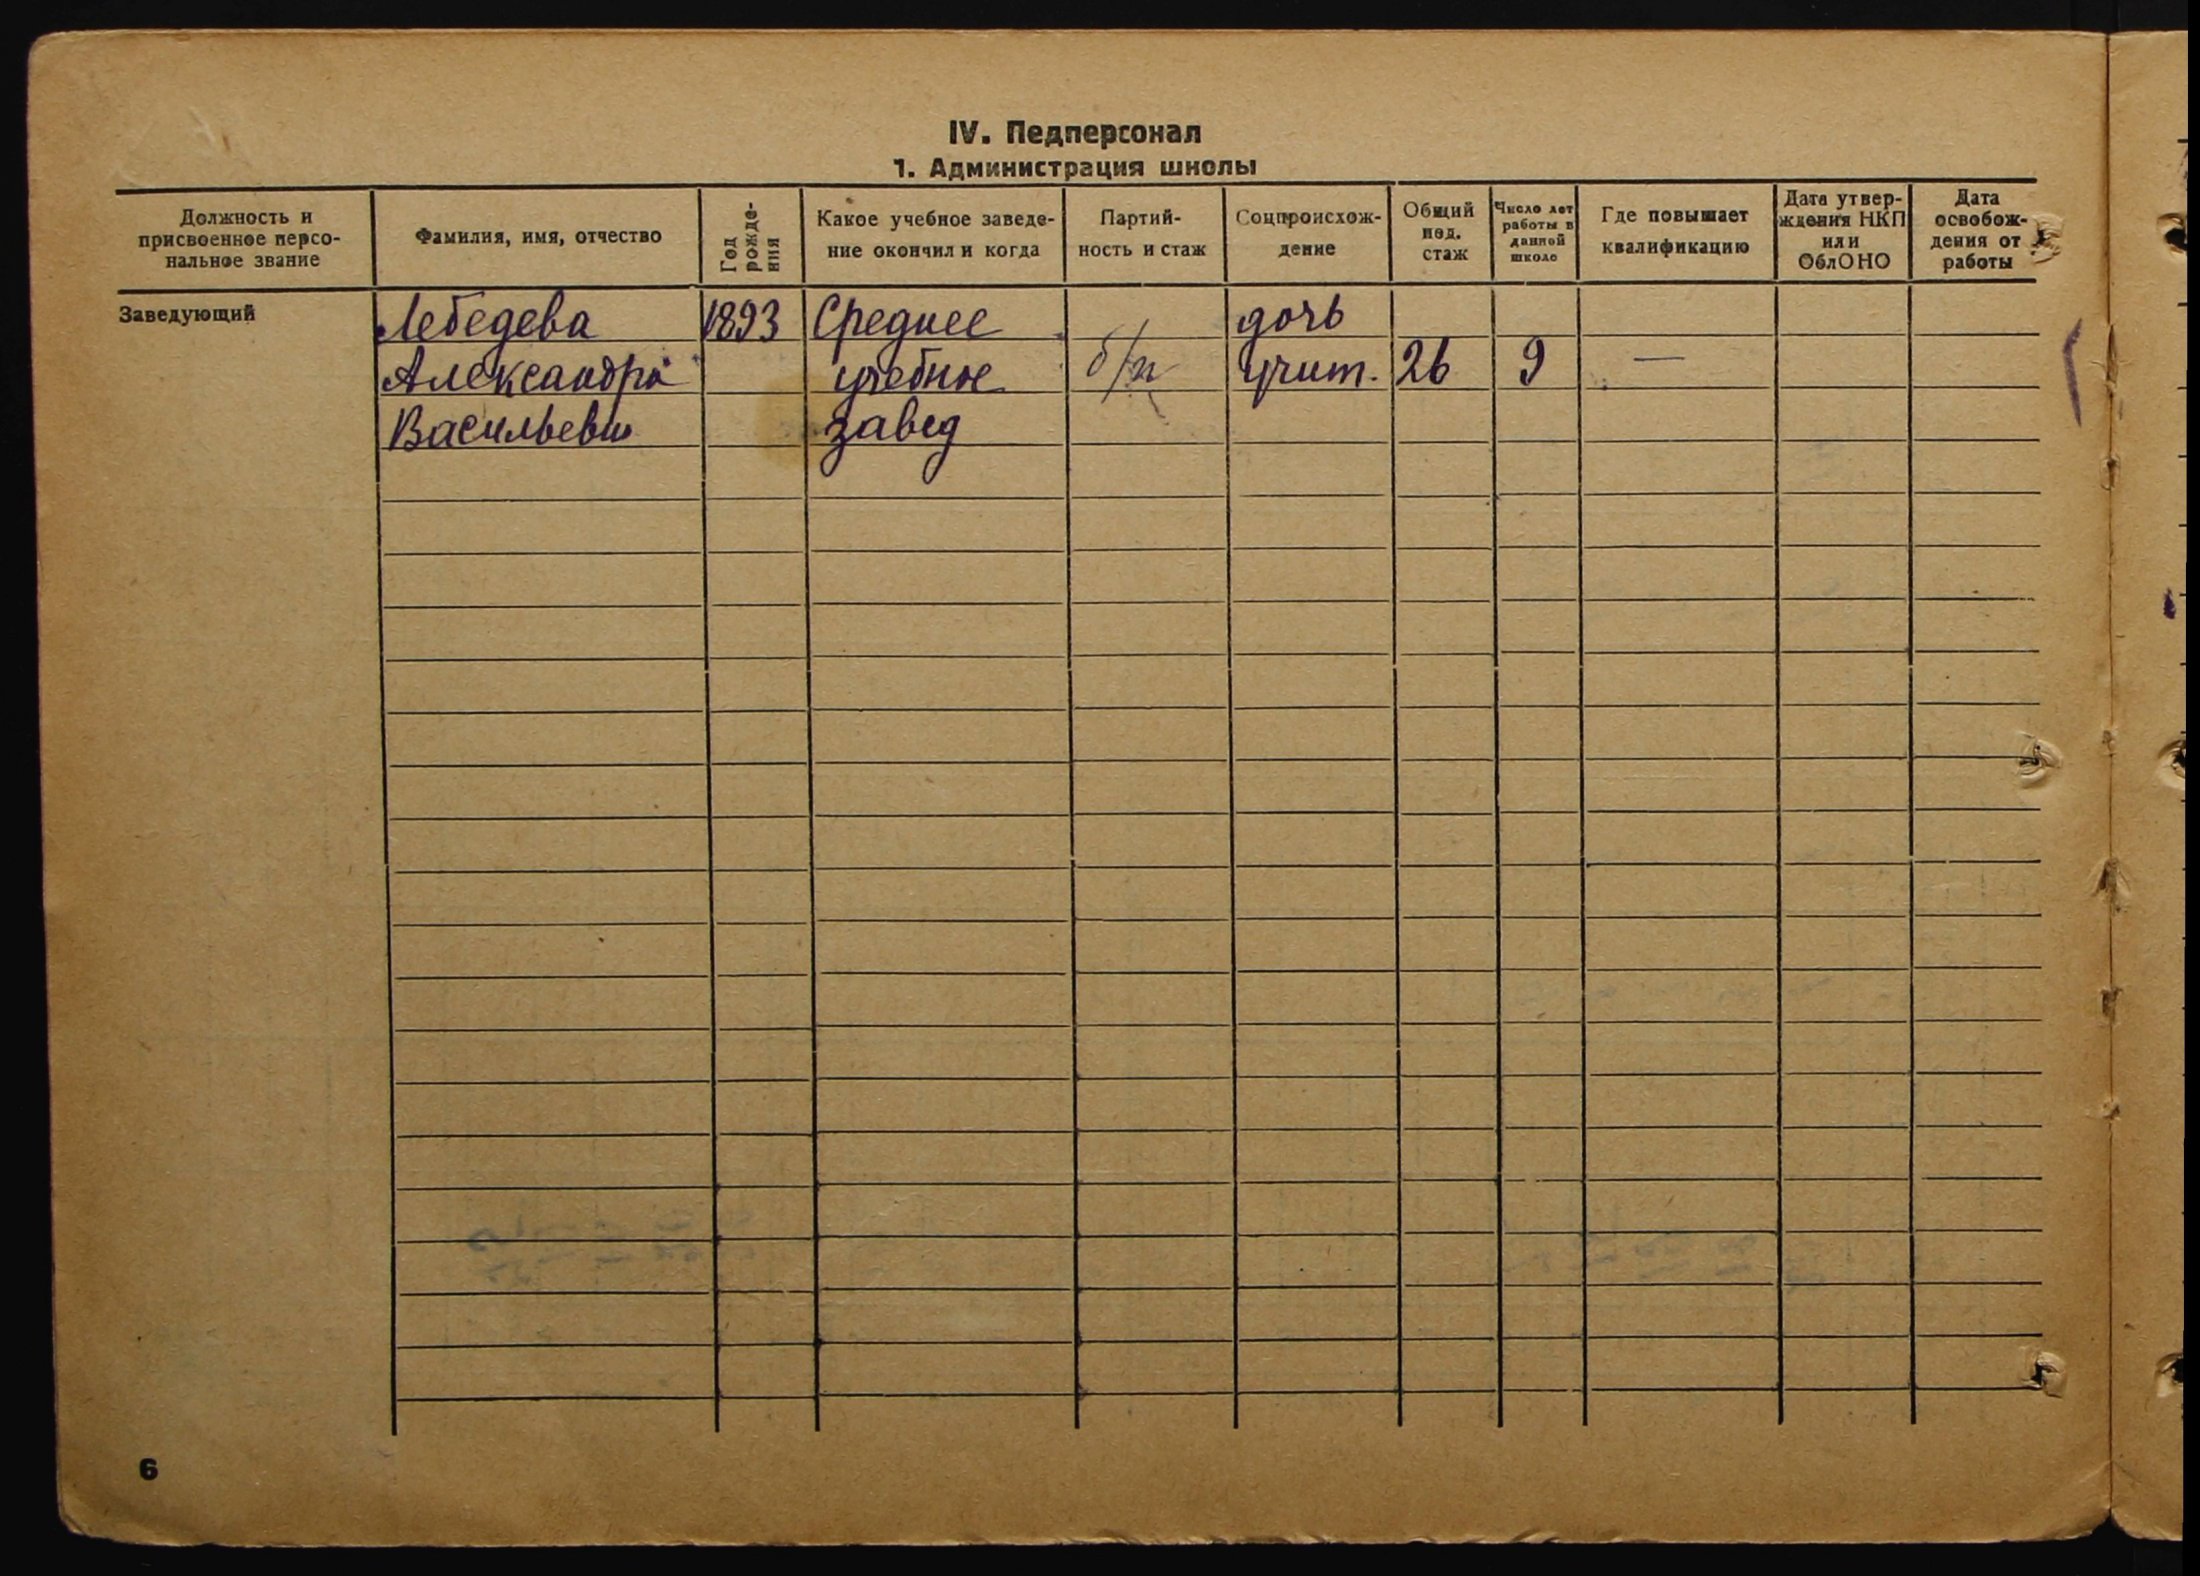 IV. Педперсонал
1. Администрация школы
Должность и
присвоенное персо-
нальное звание
Фамилия, имя, отчество
Год
рожде-
ния
Какое учебное заведе-
ние окончил и когда
Партий-
ность и стаж
Соцпроисхож-
дение
Общий
пед.
стаж
Число лет
работы в
данной
школе
Где повышает
квалификацию
Дата утвер-
ждения НКП
или
ОблОНО
Дата
освобож-
дения от
работы
Заведующий
Лебедева 1893 Среднее дочь
Александра учебное б/п учит. 26 9 —
Васильевн завед
6